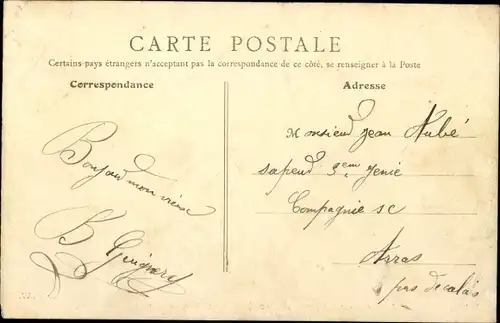 CARTE POSTALE
Certains pays étrangers n'acceptant pas la correspondance de ce côté, se renseigner à la Poste
Correspondance
Bonjour mon vieux
B
Adresse
Monsieur Jean Aubé
sapeur 3em Genie
Compagnie
Arras
pas de calais